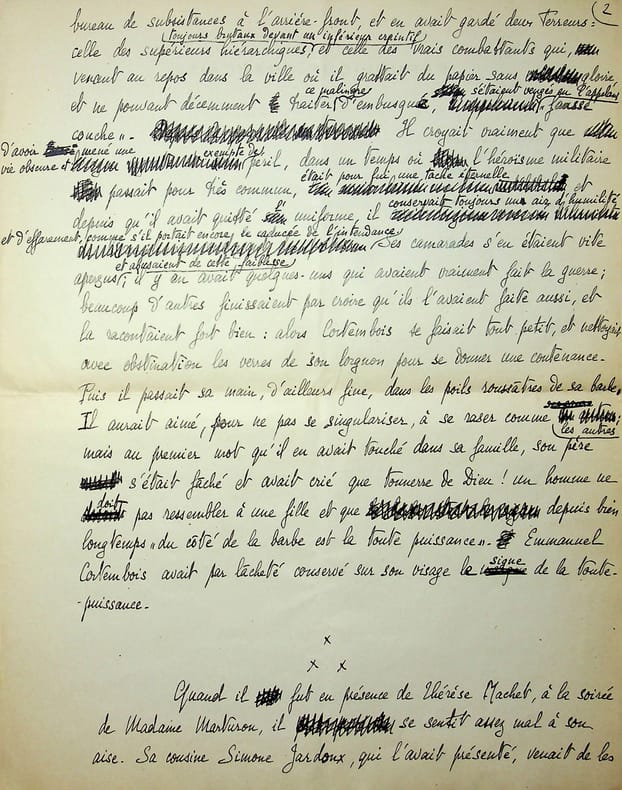 2
bureau de subsistances à l'arrière-front, et en avait gardé deux terreurs :
toujours brutaux devant un inférieur craintif
celle des supérieurs hiérarchiques, et celle des vrais combattants qui,
venant au repos dans la ville où il grattait du papier sans gloire,
ce malingre s'étaient vengés en l'appelant
et ne pouvant décemment traiter d'embusqué "fausse
couche". Il croyait vraiment que
d'avoir mené une
vie obscure et exempte de péril, dans un temps où l'héroïsme militaire
était pour lui une tache éternelle
passait pour très commun, et
conservait toujours un air d'humilité
depuis qu'il avait quitté l'uniforme, il
et d'effarement, comme s'il portait encore le caducée de l'intendance.
Ses camarades s'en étaient vite
et abusaient de cette faiblesse
aperçus ; il y en avait quelques-uns qui avaient vraiment fait la guerre ;
beaucoup d'autres finissaient par croire qu'ils l'avaient faite aussi, et
la racontaient fort bien : alors Cortembois se faisait tout petit, et nettoyait
avec obstination les verres de son lorgnon pour se donner une contenance.
Puis il passait sa main, d'ailleurs fine, dans les poils roussâtres de sa barbe.
Il aurait aimé, pour ne pas se singulariser, à se raser comme
les autres
mais au premier mot qu'il en avait touché dans sa famille, son père
s'était fâché et avait crié que tonnerre de Dieu ! un homme ne
doit
pas ressembler à une fille et que depuis bien
longtemps "du côté de la barbe est la toute puissance". Emmanuel
signe
Cortembois avait par lâcheté conservé sur son visage le de la toute-
-puissance.
x
x x
Quand il fut en présence de Thérèse Machet, à la soirée
de Madame Marturon, il se sentit assez mal à son
aise. Sa cousine Simone Jardoux, qui l'avait présenté, venait de les